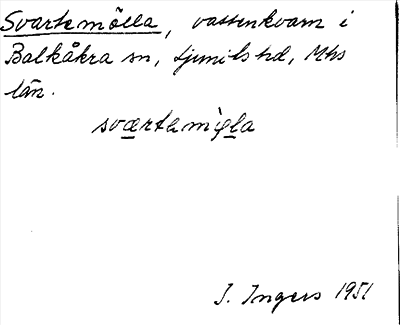 Svartemölla, vattenkvarn i
Balkåkra sn, Ljunits hd, Mhs
län.
sværtemı̀ɡ̨la
I. Ingers 1951